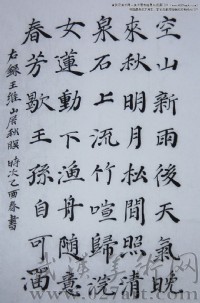 空山新雨後天氣晚
來秋明月松間照清
泉石上流竹喧歸浣
女蓮動下漁舟隨意
春芳歇王孫自可留
右錄王維山居秋暝 時次乙酉春書